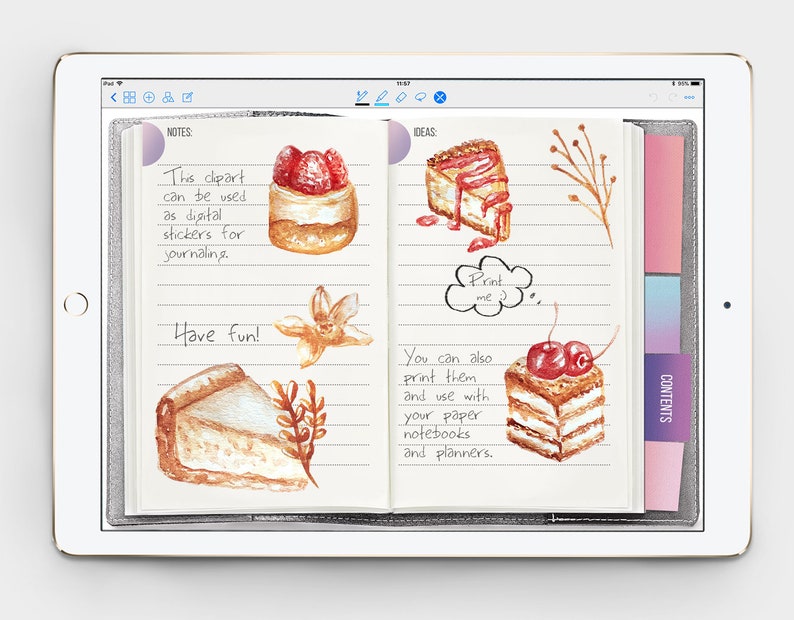 iPad
11:57
95%
NOTES:
This clipart
can be used
as digital
stickers for
journaling.
Have fun!
IDEAS:
Print
me :)
You can also
print them
and use with
your paper
notebooks
and planners.
CONTENTS